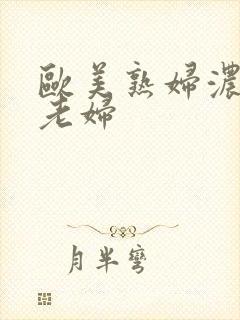 歐美熟婦濃
老婦
月半彎